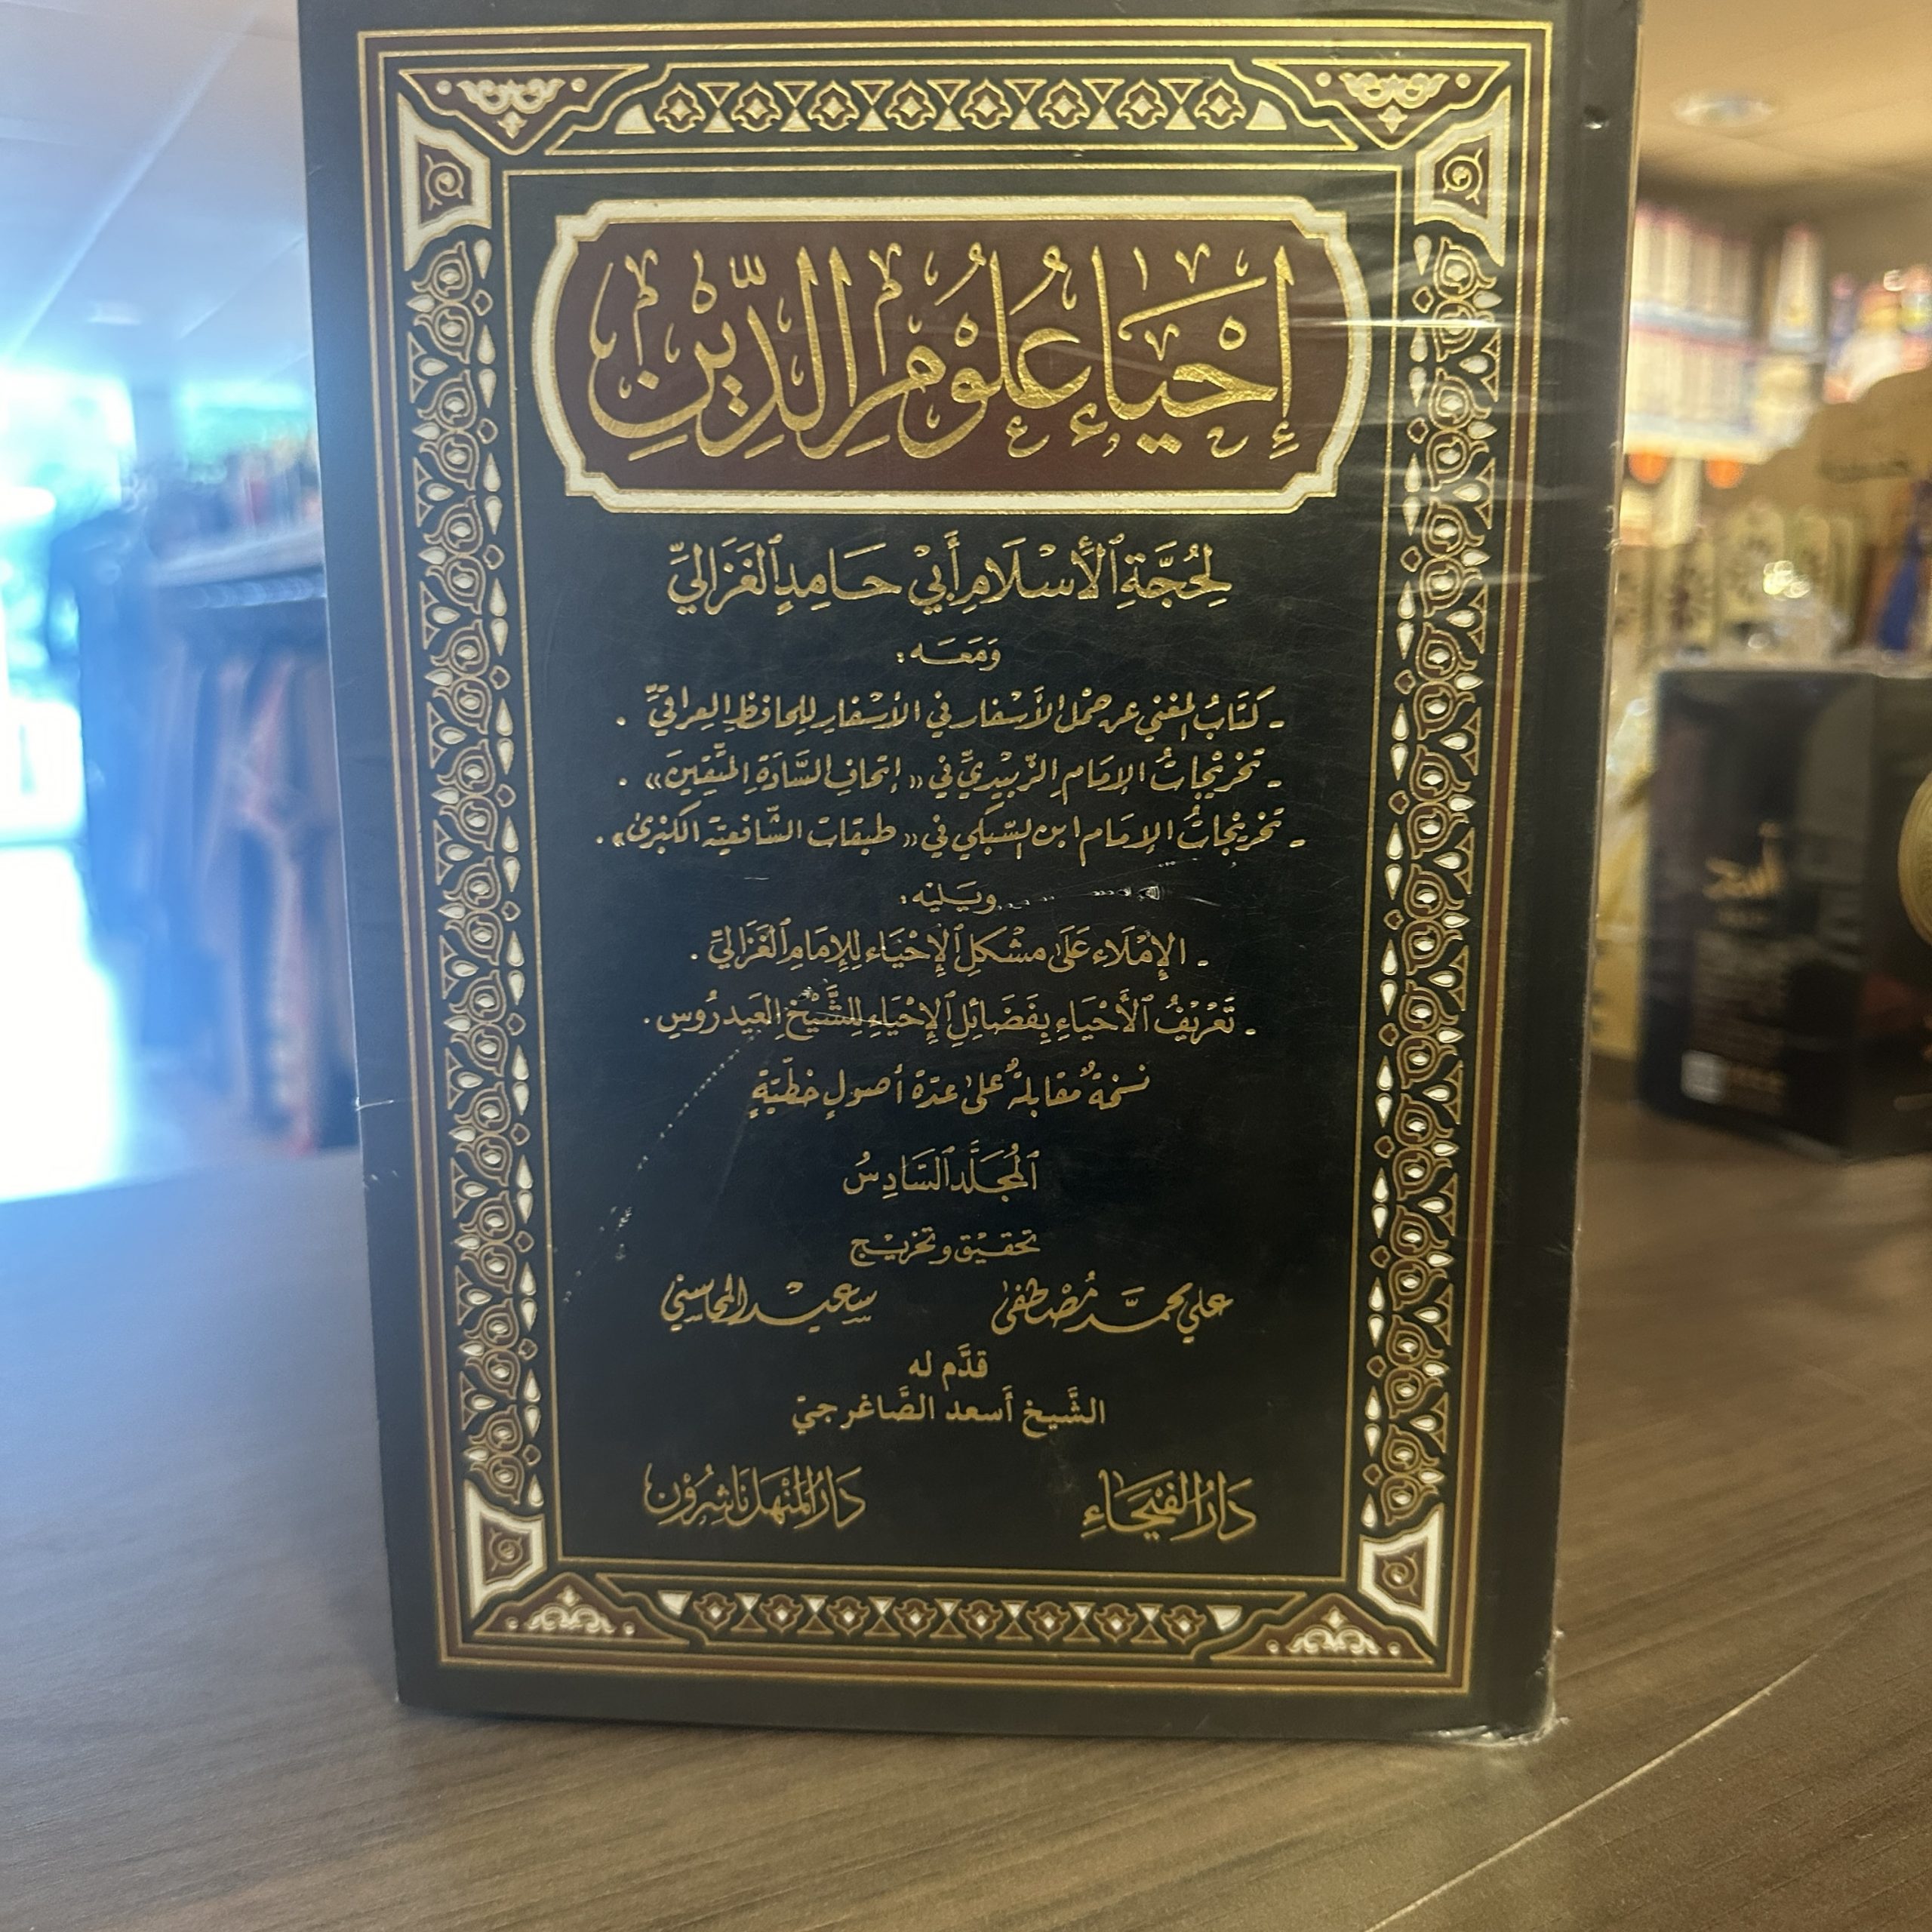 إِحْيَاءُ عُلُومِ الدِّيْنِ
لِحُجَّةِ ٱلْأَسْلَامِ أَبِيْ حَامِدٍ ٱلْغَزَالِيِّ
وَمَعَه:
- كتَابُ المغني عن حمْل الأَسْفار في الأسْفار للحافظِ العِراقيِّ .
- تخريْجاتُ الإمَام الزّبيْديِّ في «إتحاف السَّادَةِ المتَّقِينَ» .
- تخريْجاتُ الإمَام ابن السّبكي في «طبقات الشّافعيّة الكبْرىٰ» .
ويَليْه:
- الإمْلَاء عَلَىٰ مشْكلِ ٱلْإِحْيَاء لِلإمَامِ ٱلْغَزَاليِّ .
- تَعْرِيْفُ ٱلْأَحْيَاءِ بِفَضَائلِ ٱلْإِحْيَاءِ لِلشَّيْخِ العَيدرُوسِ .
نسْخةٌ مُقابلةٌ علىٰ عدّة أصولٍ خطّيّةٍ
ٱلمُجَلَّد السَّادِسُ
تحقيْق وتخريْج
علي محمَّد مُصْطفىٰ سَعيْد المحَاسني
قدَّم له
الشَّيخ أسعد الصَّاغرجيّ
دَارُ الفَيْحَاءِ دَارُ المنْهَل نَاشِرُوْن
أسد